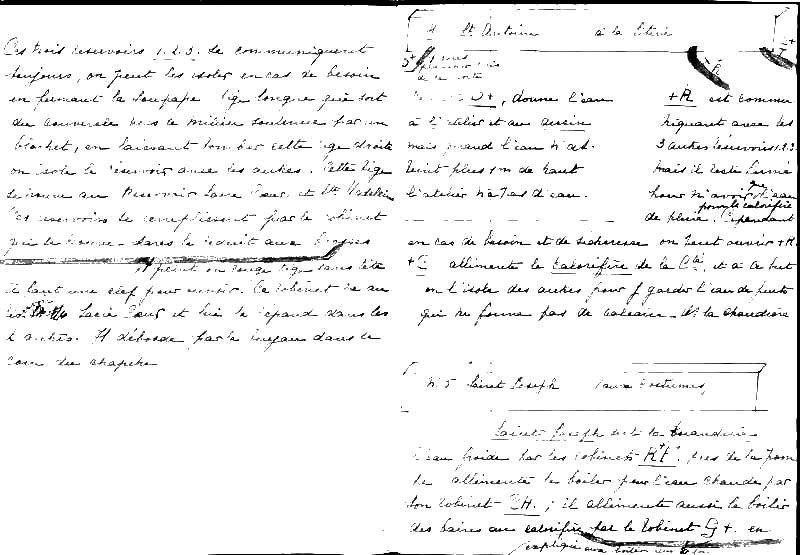 Ces trois reservoirs 1.2.3. se communiquent
toujours, on peut les isoler en cas de besoin
en fermant la soupape tige longue qui sort
du couvercle vers le milieu soutenue par un
crochet, en laissant tomber cette tige droite
on isole le réservoir avec les autres. Cette tige
se trouve au Reservoir Sacré Cœur et Ste Madeleine
Ces reservoirs se remplissent par le robinet
qui se trouve dans le réduit aux
et peint en rouge tige sans tête
il faut une clef pour ouvrir. Ce robinet va au
Sacré Cœur et lui se répand dans les
2 autres. Il déborde par le tuyau dans la
cour du chapitre
4 St Antoine à la literie
D+
R+
D+, donne l'eau
à l'atelier et au dessin
mais quand l'eau n'at-
teint plus 1m de haut
l'atelier n'a pas d'eau.
+R est commu
niquant avec les
3 autres réservoirs 1.2.3.
mais il reste fermé
pour n'avoir que l'eau
pour le calorifère
de pluie. Cependant
en cas de besoin et de sécheresse on peut ouvrir +R
+C alimente le calorifère de la Cté, et à ce but
on l'isole des autres pour y garder l'eau de pluie
qui ne forme pas de calcaire la chaudière
N. 5 Saint Joseph aux costumes,
Saint Joseph sert la buanderie
l'eau froide par les robinets près de la pom
pe alimente le boiler pour l'eau chaude par
son robinet CH. ; il alimente aussi le boiler
des bains au calorifère par le robinet G+. en
expliqué aux boiler